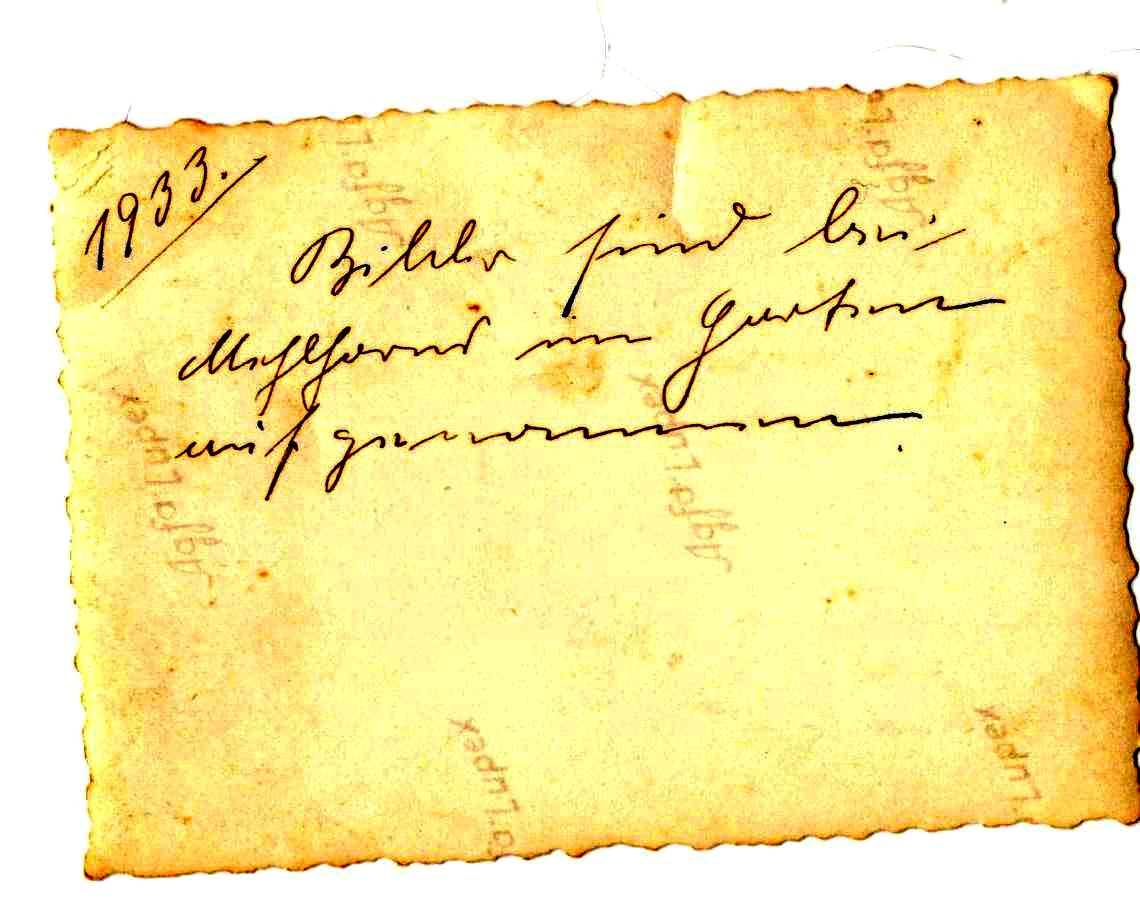 1933.
Bilder sind bei
Mehlhorns im Garten
aufgenommen.
Agfa Lupex
Agfa Lupex
Agfa Lupex
Agfa Lupex
Agfa Lupex
Agfa Lupex